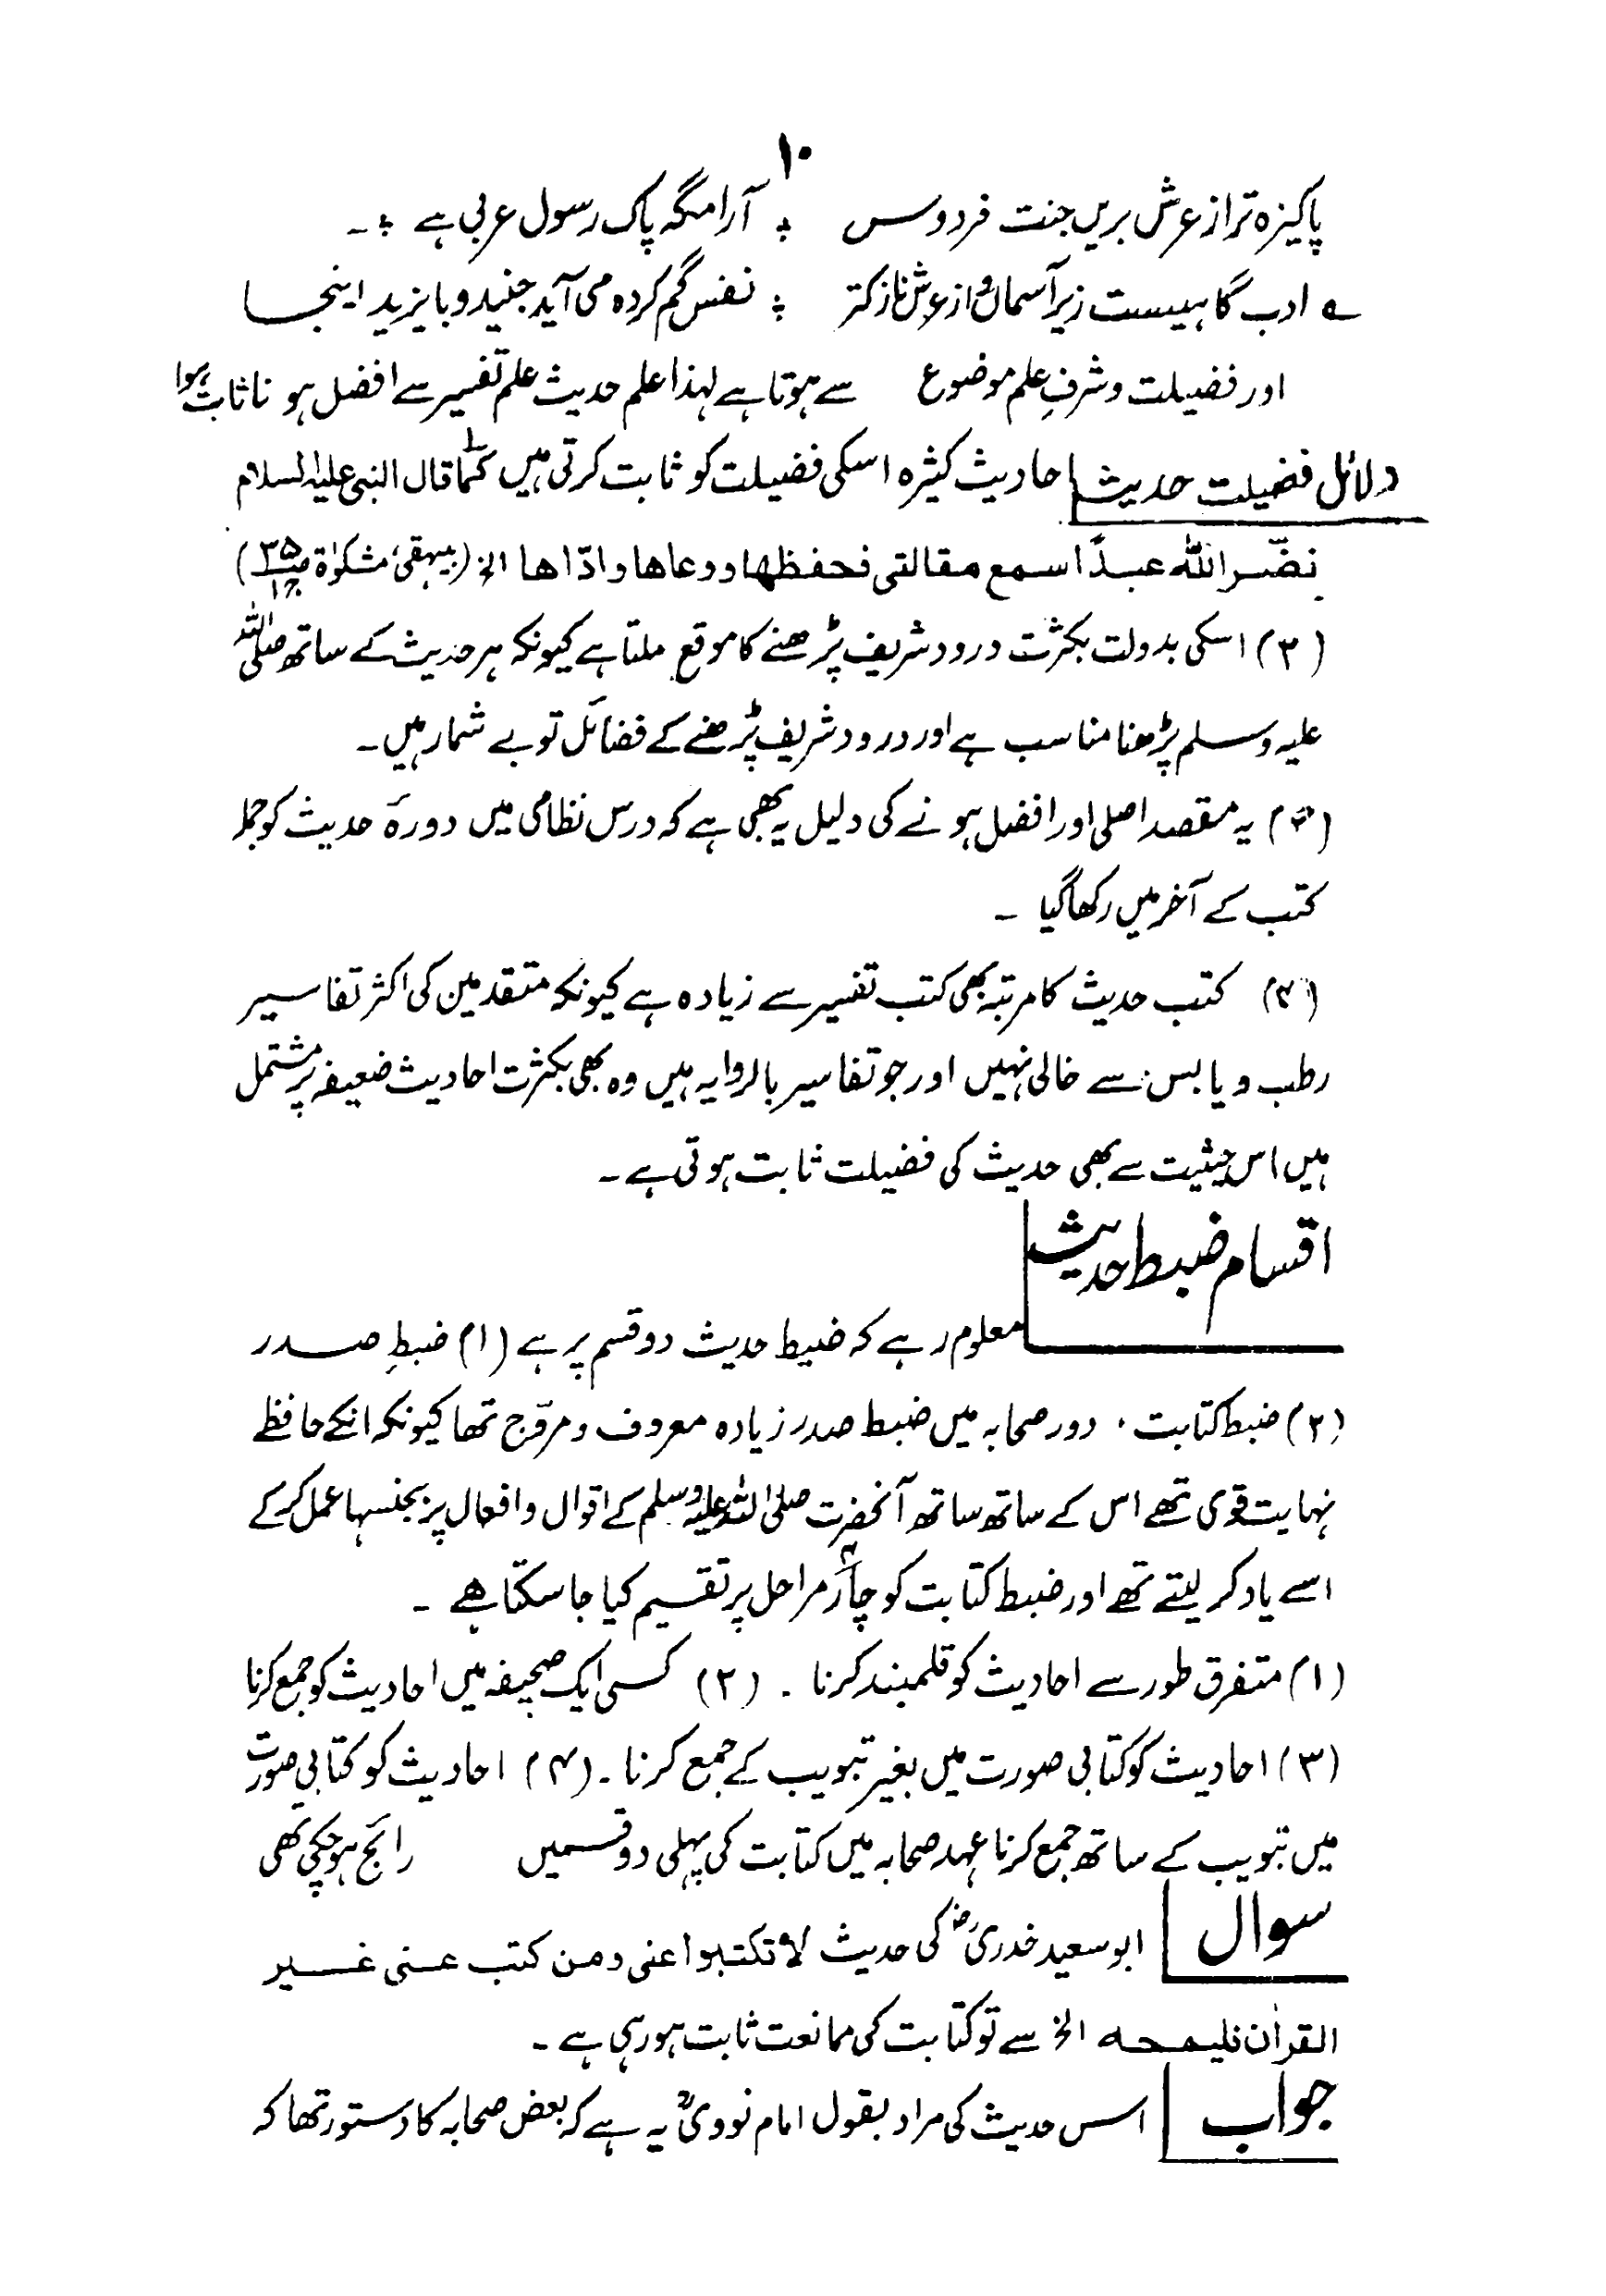 ۱۰
پاکیزہ تر از عرش بریں جنت فردوس ؛ آرامگہ پاک رسول عربی ہے ؛۔
؎ ادب گاہیست زیر آسماں و از عرش نازکتر ؛ نفس گم کردہ می آید جنید و بایزید اینجا
اور فضیلت و شرفِ علم موضوع سے ہوتا ہے لہذا علم حدیث علم تفسیر سے افضل ہو نا ثابت ہوا
دلائل فضیلت حدیث احادیث کثیرہ اسکی فضیلت کو ثابت کرتی ہیں کما قال النبی علیہ السلام
نضّر اللّٰہ عبدًا سمع مقالتی فحفظھا ووعاھا وادّاھا الخ (بیہقی، مشکوٰۃ ص۳۵)
(۳) اسکی بدولت بکثرت درود شریف پڑھنے کا موقع ملتا ہے کیونکہ ہر حدیث کے ساتھ صلی اللہ
علیہ وسلم پڑھنا مناسب ہے اور درود شریف پڑھنے کے فضائل تو بے شمار ہیں۔
(۳) یہ مقصد اصلی اور افضل ہو نے کی دلیل یہ بھی ہے کہ درس نظامی میں دورۂ حدیث کو جملہ
کتب کے آخر میں رکھا گیا ۔
(۴) کتب حدیث کا مرتبہ بھی کتب تفسیر سے زیادہ ہے کیونکہ متقدمین کی اکثر تفاسیر
رطب و یابس سے خالی نہیں اور جو تفاسیر بالروایہ ہیں وہ بھی بکثرت احادیث ضعیفہ پر مشتمل
ہیں اس حیثیت سے بھی حدیث کی فضیلت ثابت ہوتی ہے ۔
اقسام ضبط حدیث
معلوم رہے کہ ضبط حدیث دو قسم پر ہے (۱) ضبطِ صدر
(۲) ضبط کتابت ، دور صحابہ میں ضبط صدر زیادہ معروف و مروّج تھا کیونکہ انکے حافظے
نہایت قوی تھے اس کے ساتھ ساتھ آنحضرت صلی اللہ علیہ وسلم کے اقوال و افعال پر بجنسہا عمل کر کے
اسے یاد کر لیتے تھے اور ضبط کتابت کو چار مراحل پر تقسیم کیا جا سکتا ہے ۔
(۱) متفرق طور سے احادیث کو قلمبند کرنا ۔ (۲) کسی ایک صحیفہ میں احادیث کو جمع کرنا
(۳) احادیث کو کتابی صورت میں بغیر تبویب کے جمع کرنا ۔ (۴) احادیث کو کتابی صورت
میں تبویب کے ساتھ جمع کرنا عہد صحابہ میں کتابت کی پہلی دو قسمیں رائج ہو چکی تھی
سوال ابو سعید خدریؓ کی حدیث لا تکتبوا عنی ومن کتب عنی غیر
القراٰن فلیمحہ الخ سے تو کتابت کی ممانعت ثابت ہو رہی ہے ۔
جواب اس حدیث کی مراد بقول امام نوویؒ یہ ہے کہ بعض صحابہ کا دستور تھا کہ